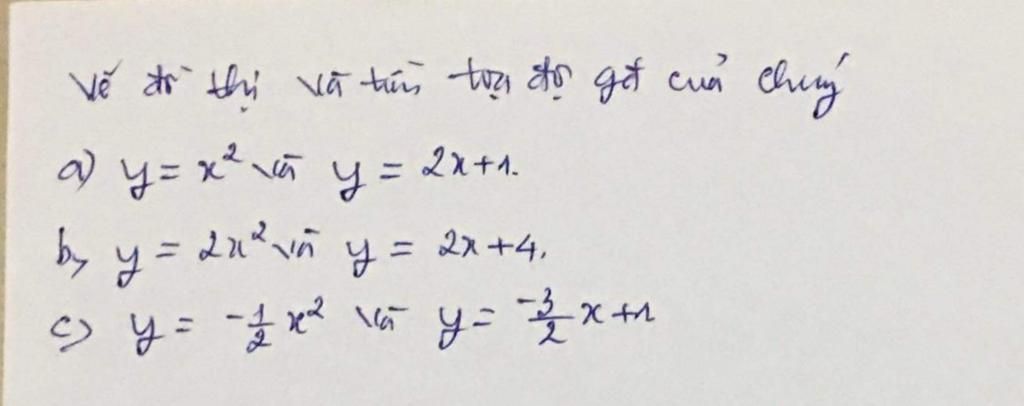 Vẽ đồ thị và tìm tọa độ gđ của chúng
a) y = x² và y = 2x+1.
b, y = 2x² và y = 2x+4.
c) y = -1/2 x² và y = -3/2 x+1